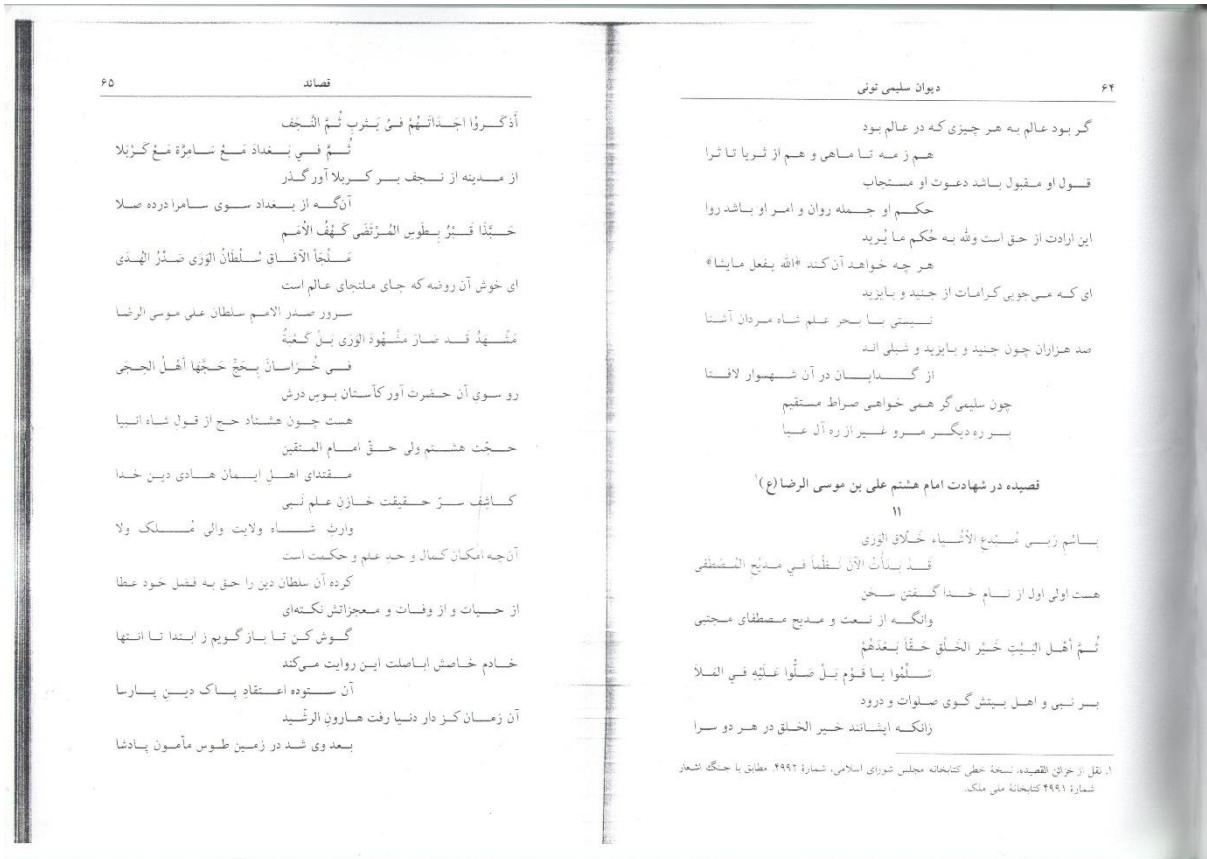 ۶۴
دیوان سلیمی تونی
گر بود عالم به هر چیزی که در عالم بود
هم ز مه تا ماهی و هم از ثریا تا ثرا
قول او مقبول باشد دعوت او مستجاب
حکم او جمله روان و امر او باشد روا
این ارادت از حق است ولله به حُکم ما یُرید
هر چه خواهد آن کند «الله یفعل مایشا»
ای که می‌جویی کرامات از جنید و بایزید
نیستی با بحر علم شاه مردان آشنا
صد هزاران چون جنید و بایزید و شبلی اند
از گدایان در آن شهسوار لافتا
چون سلیمی گر همی خواهی صراط مستقیم
بر ره دیگر مرو غیر از ره آل عبا
قصیده در شهادت امام هشتم علی بن موسی الرضا (ع)۱
۱۱
بِاسْمِ رَبّی مُبْدِعِ الأَشْیاء خَلّاقِ الوَری
قَدْ بَدَأتُ الآنَ نَظْماً فی مدیحِ المُصْطَفی
هست اولی اول از نام خدا گفتن سخن
وانگه از نعت و مدیح مصطفای مجتبی
ثُمَّ أهْل البَیْتِ خَیْر الخَلْقِ حَقّاً بَعْدَهُمْ
سَلِّمُوا یا قَوْم بَلْ صَلُّوا عَلَیْهِ فی المَلأ
بر نبی و اهل بیتش گوی صلوات و درود
زانکه ایشانند خیر الخلق در هر دو سرا
۱. نقل از خزائن القصیده، نسخهٔ خطی کتابخانه مجلس شورای اسلامی، شمارهٔ ۴۹۹۲. مطابق با جنگ اشعار
شمارهٔ ۴۹۹۱ کتابخانهٔ ملی ملک.
قصائد
۶۵
أذکروُا اجدَاثَهُمْ فیْ یَثربِ ثُمَّ النَّجَف
ثُمَّ فی بَغدادَ مَعْ سَامِرَّة مَعْ کَرْبَلا
از مدینه از نجف بر کربلا آور گذر
آن‌گه از بغداد سوی سامرا درده صلا
حَبَّذَا قَبْرٌ بِطُوسِ المُرْتَضَی کَهْفُ الأمَم
مَلْجَأ الآفاقِ سُلْطَانُ الوَرَی صَدْرُ الهُدَی
ای خوش آن روضه که جای ملتجای عالم است
سرور صدر الامم سلطان علی موسی الرضا
مَشْهَدٌ قَد صَارَ مَشْهُودَ الوَرَی بَلْ کَعْبَةٌ
فی خُرَاسانَ بِحَجّ حَجَّهَا أهْلُ الحِجَی
رو سوی آن حضرت آور کآستان بوسِ درش
هست چون هشتاد حج از قول شاه انبیا
حجّت هشتم ولی حقّ امام المتقین
مقتدای اهلِ ایمان هادی دین خدا
کاشِف سرّ حقیقت خازن علم نَبی
وارثِ شاه ولایت والی مُلک ولا
آن‌چه امکان کمال و حد علم و حکمت است
کرده آن سلطان دین را حق به فضل خود عطا
از حیات و از وفات و معجزاتش نکته‌ای
گوش کن تا بازگویم ز ابتدا تا انتها
خادم خاصش اباصلت این روایت می‌کند
آن ستوده اعتقادِ پاک دینِ پارسا
آن زمان کز دار دنیا رفت هارونِ الرشید
بعد وی شد در زمین طوس مأمون پادشا